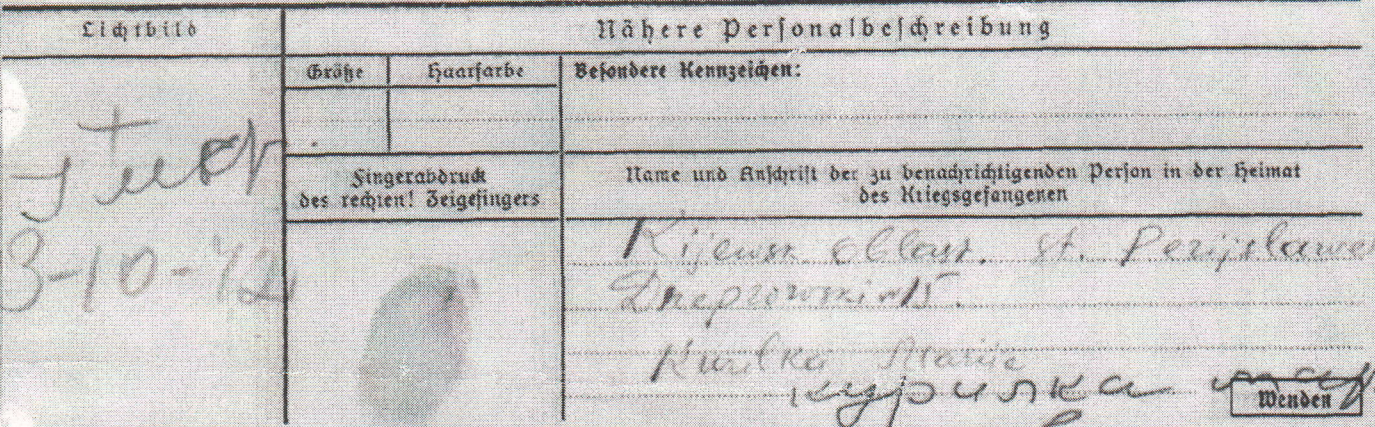 Lichtbild
Nähere Personalbeschreibung
Größe
Haarfarbe
Besondere Kennzeichen:
Fingerabdruck
des rechten! Zeigefingers
Name und Anschrift der zu benachrichtigenden Person in der Heimat
des Kriegsgefangenen
3-10-42
Kijewsk oblast. st.
Kurilka
курилка
Wenden